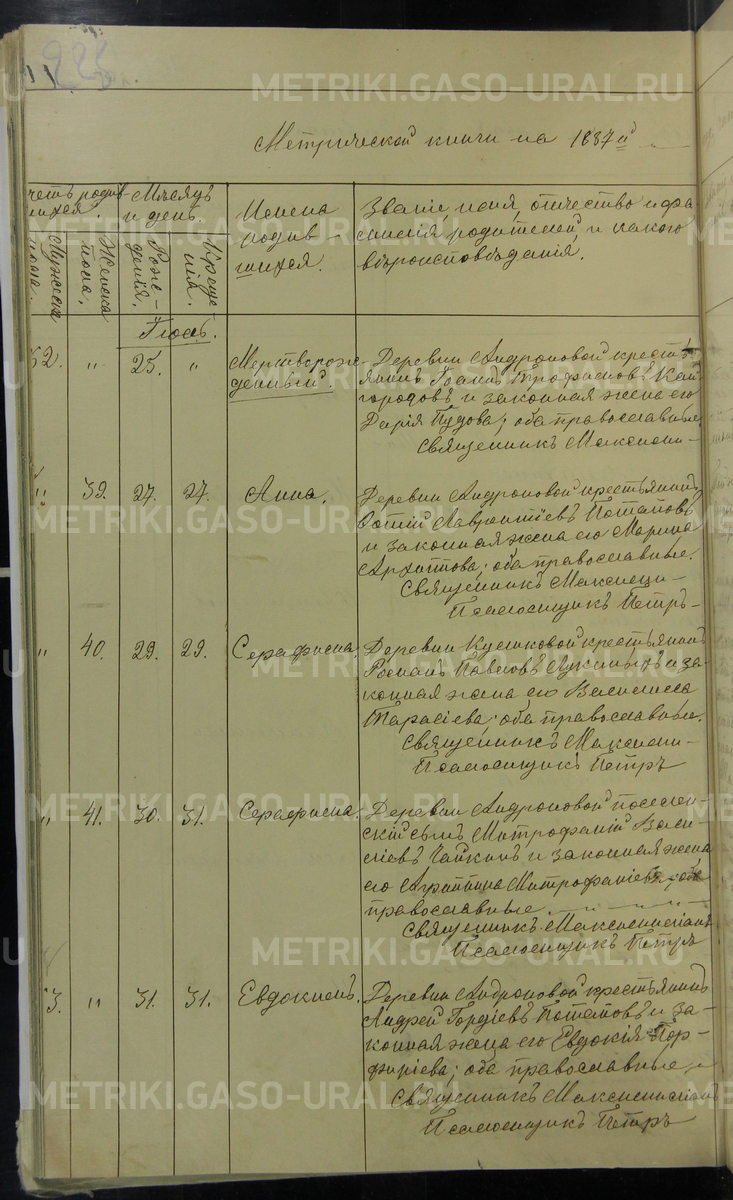 223
METRIKI.GASO-URAL.RU
Метрической книги на 1887й
четъ родив-
шихся.
Мужеска
пола.
Женска
пола.
Мѣсяцъ
и день.
Рож-
денія.
Креще-
нія.
Имена
родив-
шихся.
Званіе, имя, отчество и фа-
милія родителей, и какого
вѣроисповѣданія.
Іюль.
52. " 25. " Мертворож-
денный.
Деревни Андроновой кресть-
янинъ Іоаннъ Трофимовъ Кай-
городовъ и законная жена его
Дарія Пудова; оба православные.
Священникъ Максими-
" 39. 27. 27. Анна.
Деревни Андроновой крестьянинъ
Фотій Лаврентіевъ Потаповъ
и законная жена его Марина
Архипова; оба православные.
Священникъ Максими-
Псаломщикъ Петръ-
" 40. 29. 29. Серафима.
Деревни Кушковой крестьянинъ
Романъ Павловъ Лукиныхъ и за-
конная жена его Васмлисса
Тарасіева; оба православные.
Священникъ Максими-
Псаломщикъ Петръ
" 41. 30. 31. Серафима.
Деревни Андроновой поселен-
скій сынъ Митрофаній Васи-
ліевъ Чайкинъ и законная жена
его Агриппина Митрофаніева; оба
православные.
Священникъ Максимиліанъ
Псаломщикъ Петръ
53. " 31. 31. Евдокимъ.
Деревни Андроновой крестьянинъ
Андрей Гордіевъ Потаповъ и за-
конная жена его Евдокія Пор-
фиріева; оба православные
Священникъ Максимиліанъ
Псаломщикъ Петръ